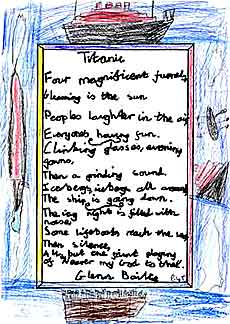 Titanic
Four magnificent funnels,
Gleaming in the sun
Peoples laughter in the air,
Everyones having fun.
Clinking glasses, evening
gowns,
Then a grinding sound.
Icebergs, icebergs all around
The ship is going down.
The icy night is filled with
noises
Some lifeboats reach the sea,
Then silence,
All but one giant playing
of Nearer my God to thee.
Glenn